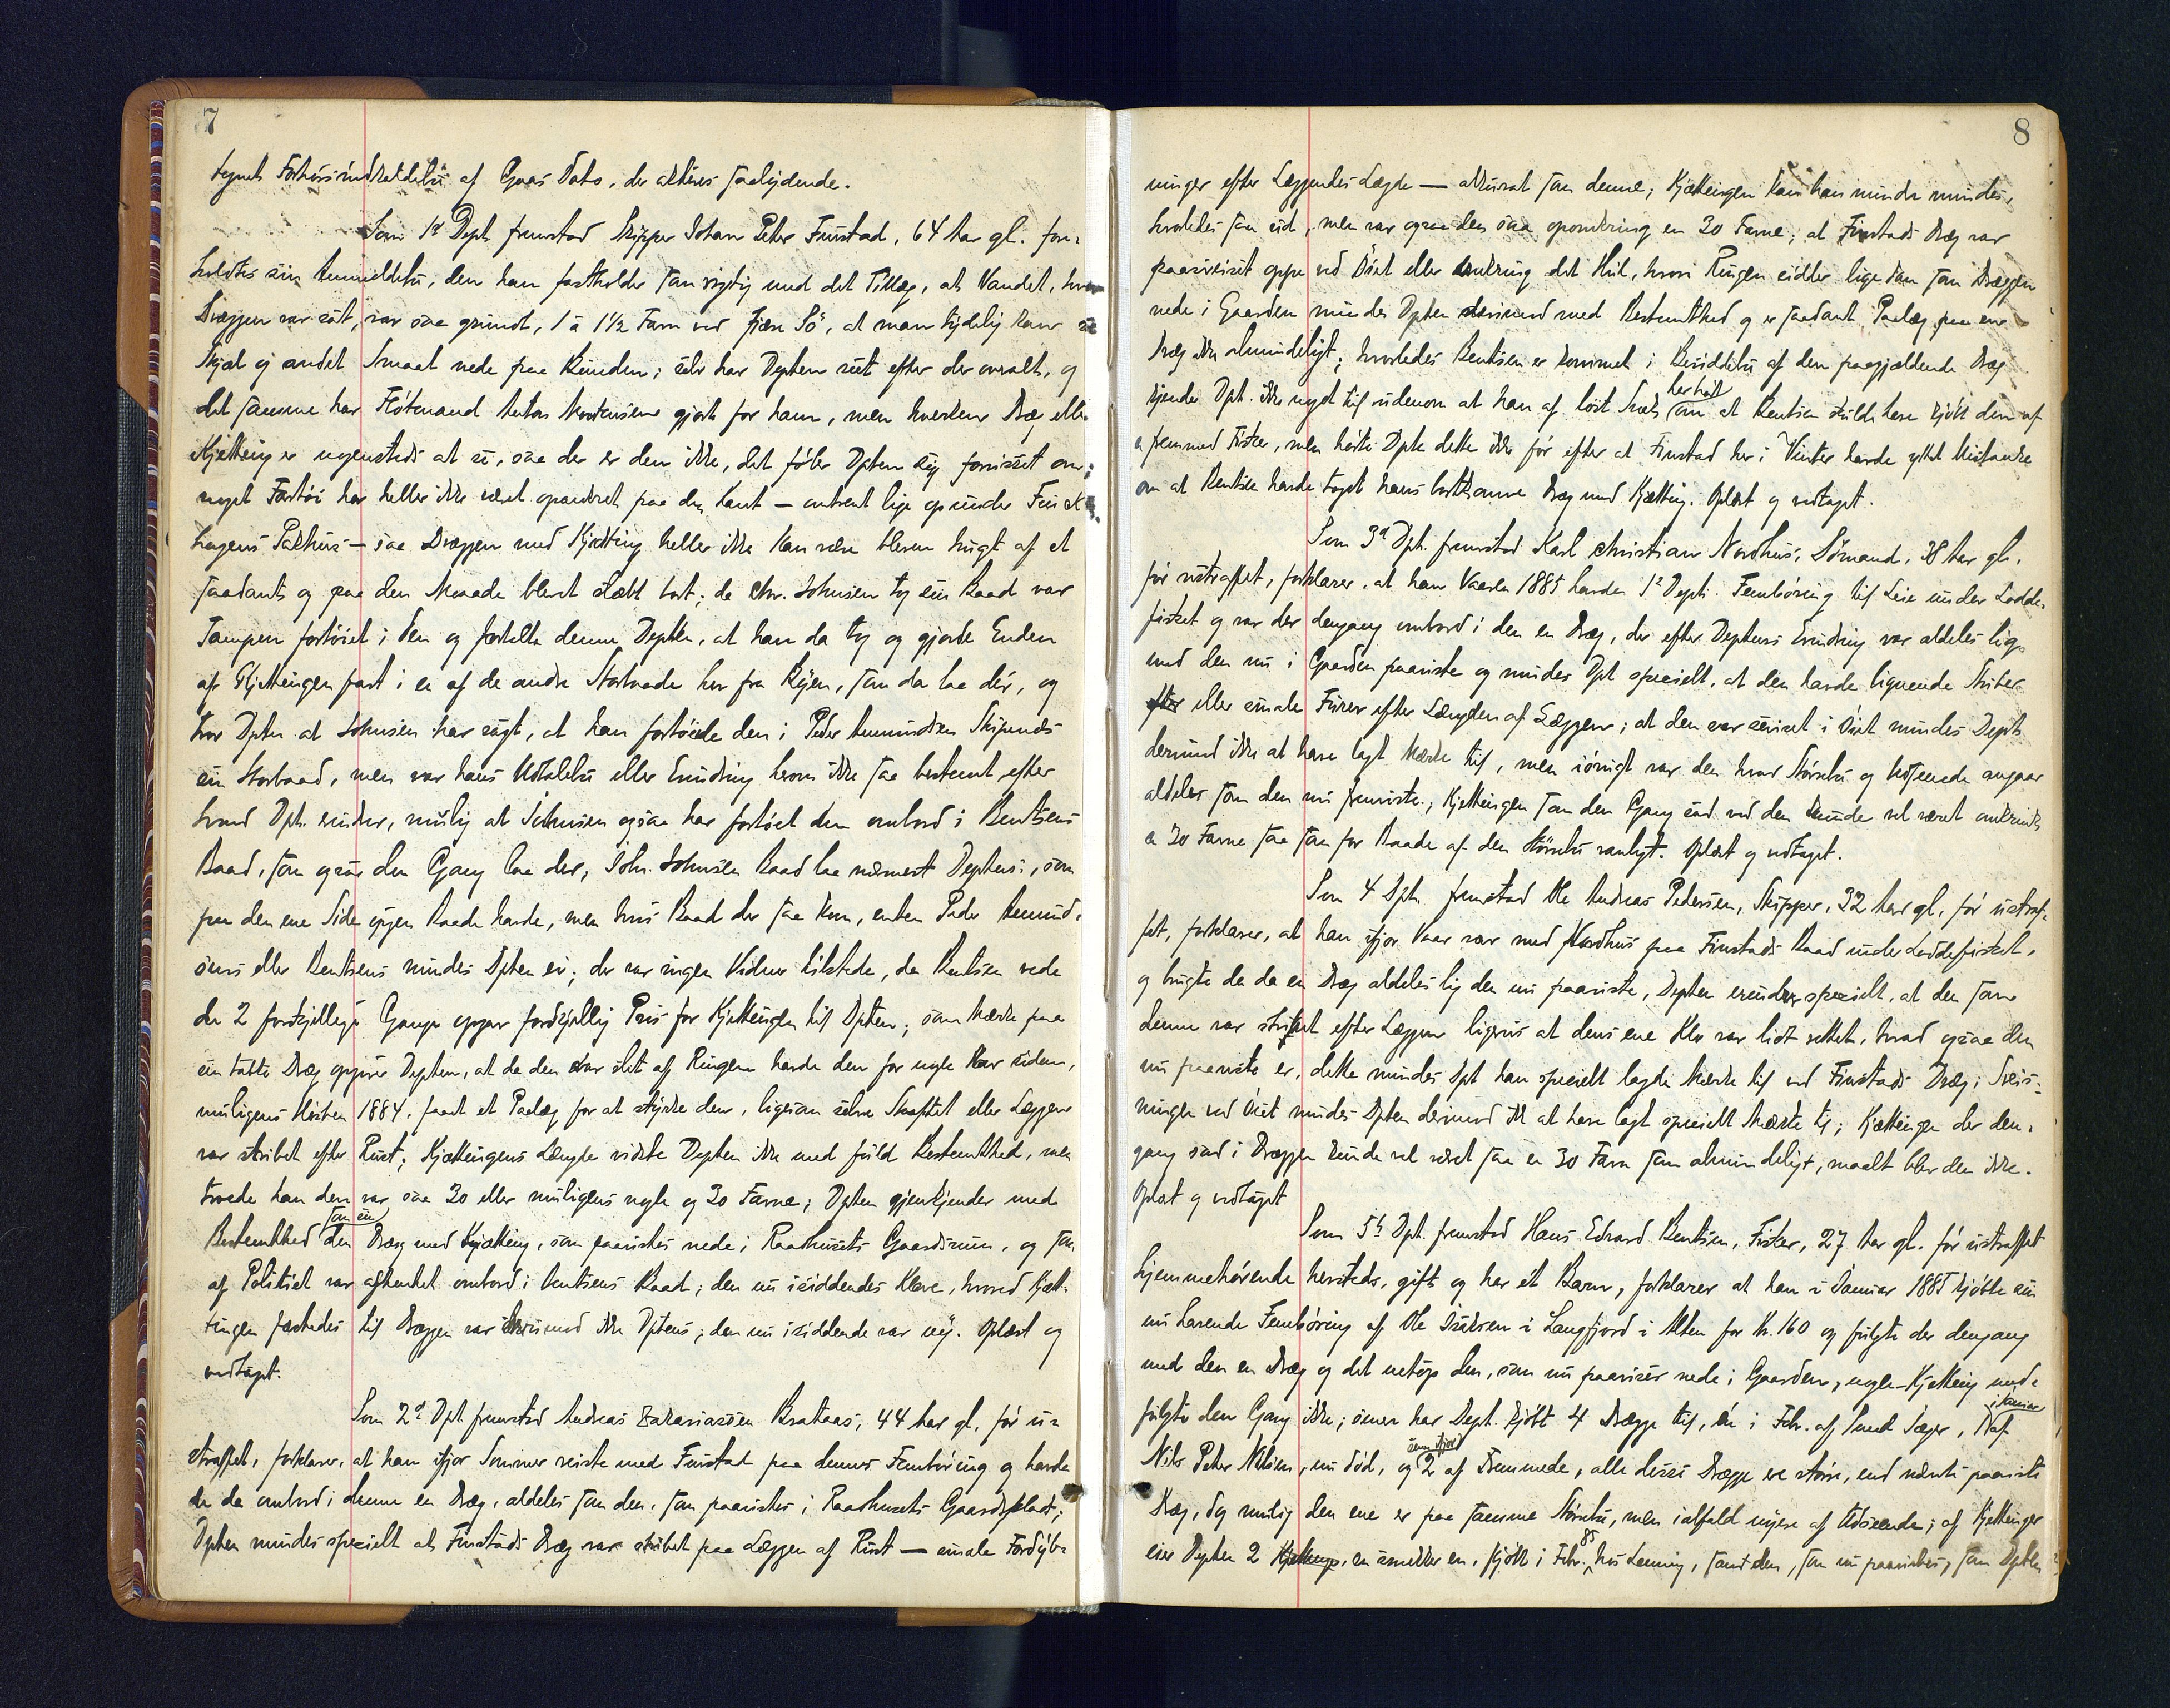 7
tegnet Forhørsindkaldelse af Gaars Dato, der akteres saalydende.
Som 1ste Dept. fremstod Skipper Johan Peter Finstad, 64 Aar gl. fore-
holdtes sin Anmeldelse, den han fastholder som rigtig med det Tillæg, at Vandet, hvor
Dræggen var søt, var saa grundt, 1 à 1½ Favn ved fjære Sö, at man tydelig kan se
Skjæl og andet Smaat nede paa Bunden; selv har Depten seet efter der overalt, og
det samme har Flötmand Anton Mortensen gjort for ham, men hverken Dræg eller
Kjetting er nogensteds at se, saa der er den ikke, det föler Depten sig forvisset om;
noget Fartöi har heller ikke været opankret paa den Kant — omtrent lige op under Finck
hagens Pakhus — saa Dræggen med Kjetting heller ikke kan være bleven hugt af et
saadant og paa den Maade blevet slæbt bort; da Chr. Johnsen tog sin Baad var
Tampen fortöiet i den og fortalte denne Depten, at han da tog og gjorde Enden
af Kjettingen fast i en af de andre Storbaade her fra Byen, som da laa dér, og
tror Depten at Johnsen har sagt, at han fortöiede den i Peder Amundsen Skipnæs
sin Storbaad, men var hans Udtalelse eller Erindring herom ikke saa bestemt efter
hvad Dpt. erindrer, mulig at Johnsen ogsaa har fortöiet den ombord i Bentsens
Baad, som ogsaa den Gang laa der, Johs. Johnsen Baad laa nærmest Deptens, som
paa den ene Side ingen Baade havde, men hvis Baad der saa kom, enten Peder Amund-
sens eller Bentsens mindes Dpten ei; der var ingen Vidner tilstede, da Bentsen vede
de 2 forskjellige Gange opgav forskjellig Pris for Kjettingen til Dpten; som Mærke paa
sin tabte Dræg opgiver Depten, at da den var slet af Ringen havde den for nogle Aar siden,
muligens Hösten 1884, faaet et Paalæg for at styrke den, ligesom selve Skaftet eller Læggen
var stribet efter Rust; Kjættingens Længde vidste Depten ikke med fuld Bestemthed, men
troede han den var saa 30 eller muligens nogle og 30 Favne; Dpten gjenkjender med
Bestemthed som sin den Dræg med Kjætting, som paavistes nede i Raadhusets Gaardsrum, og som
af Politiet var afhentet ombord i Bentsens Baad; den nu isiddendes Klave, hvorved Kjæt-
tingen fæstedes til Dræggen var derimod ikke Dptens; den nu isiddende var ny. Oplæst og
vedtaget.
Som 2d Dpt. fremstod Andreas Zakariassen Brataas, 44 Aar gl., för u-
straffet, forklarer, at han ifjor Sommer reiste med Finstad paa dennes Femböring og havde
de da ombord i denne en Dræg, aldeles som den, som paavistes i Raadhusets Gaardsplads;
Dpten mindes specielt at Finstads Dræg var stribet paa Læggen af Rust — smale Fordyb-
8
ninger efter Læggendes Længde — akkurat som denne; Kjættingen kan han mindre mindes,
hvorledes saa ud, men var ogsaa den saa omkring en 30 Favne; at Finstads Dræg var
paasveiset oppe ved Öiet eller omkring det Hul, hvori Ringen sidder lige som paa Dræggen
nede i Gaarden mindes Dpten derimod med Bestemthed og er saadant Paalæg paa en
Dræg ikke almindeligt; hvorledes Bentsen er kommet i Besiddelse af den paagjældende Dræg
kjender Dpt. ikke noget til udenom at han af löst Snak har hört om at Bentsen skulde have kjöbt den af
en fremmed Fisker, men hörte Dpten dette ikke för efter at Finstad her i Vinter havde yttet Mistanke
om at Bentsen havde taget hans bortkomne Dræg med Kjætting. Oplæst og vedtaget.
Som 3d Dpt. fremstod Karl Christian Nordhus, Sömand, 38 Aar gl.
för ustraffet, forklarer, at han Vaaren 1885 havde 1ste Depts. Femböring til Leie under Lodde-
fisket og var der dengang ombord i den en Dræg, der efter Deptens Erindring var aldeles lig
med den nu i Gaarden paaviste og mindes Dpt specielt, at den havde lignende Striber
eller smale Furer efter Længden af Læggen; at den var sveiset i Öiet mindes Dept
derimod ikke at have lagt Mærke til, men iövrigt var den hvad Störrelse og Udseende angaar
aldeles som den nu fremviste; Kjettingen som den Gang sad ved den kunde vel været omkring
en 30 Favne saa som for Baade af den Störrelse vanligt. Oplæst og vedtaget.
Som 4 Dpt. fremstod Ole Andreas Pedersen, Skipper, 32 Aar gl., för ustraf-
fet, forklarer, at han ifjor Vaar var med Nordhus paa Finstads Baad under Loddefisket,
og brugte de da en Dræg aldeles lig den nu paaviste, Depten erindrer specielt, at den som
denne var stribet efter Læggen ligesom at dens ene Klo var lidt rettet, hvad ogsaa den
nu paaviste er, dette mindes Dpt han specielt lagde Mærke til ved Finstads Dræg; Sveis-
ningen ved Öiet mindes Dpten derimod ikke at have lagt specielt Mærke til; Kjættingen der den-
gang sad i Dræggen kunde vel været saa en 30 Favn som almindeligt, maalt blev den ikke.
Oplæst og vedtaget
Som 5te Dpt. fremstod Hans Edvard Bentsen, Fisker, 27 Aar gl. för ustraffet
hjemmehörende hersteds, gift og har ét Barn, forklarer at han i Januar 1885 kjöbte sin
nu havende Femböring af Ole Isaksen i Langfjord i Alten for Kr. 160 og fulgte der dengang
med den en Dræg og det netop den, som nu paavises nede i Gaarden, nogen Kjetting med-
fulgte den Gang ikke; senere har Dept. kjöbt 4 Drægge til, én i Febr. af Smed Sager, 1 i Januar af
Nils Peter Nilsen, nu död, og 2 senere ifjor af Fremmede, alle disse Drægge ere större, end nævnte paaviste
Dræg, dog mulig den ene er paa samme Störrelse, men ialfald nyere af Udseende; af Kjettinger
eier Depten 2, en smekker en, kjöbt i Febr. 85 hos Lanning, samt den, som nu paavistes, som Dpten